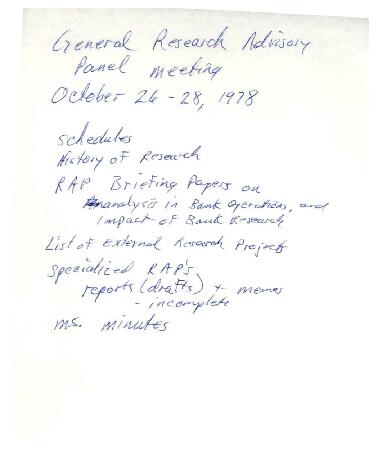 General Research Advisory
Panel meeting
October 26-28, 1978
schedules
History of Research
RAP Briefing Papers on
analysis in Bank Operations, and
impact of Bank Research
List of External Research Projects
specialized RAP's
reports (drafts) + memos
- incomplete
ms. minutes